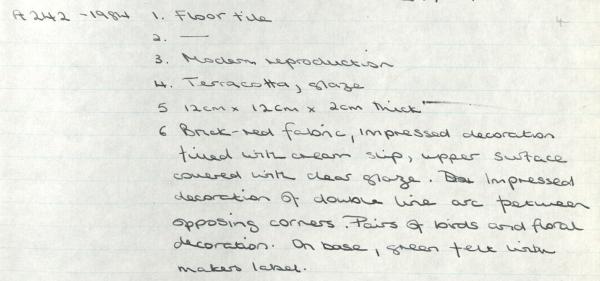 A242-1984 1. Floor tile
2. —
3. Modern reproduction
4. Terracotta, glaze
5 12cm x 12cm x 2cm thick
6 Brick-red fabric, impressed decoration
filled with cream slip, upper surface
covered with clear glaze. Impressed
decoration of double line arc between
opposing corners. Pairs of birds and floral
decoration. On base, green felt with
makers label.
4